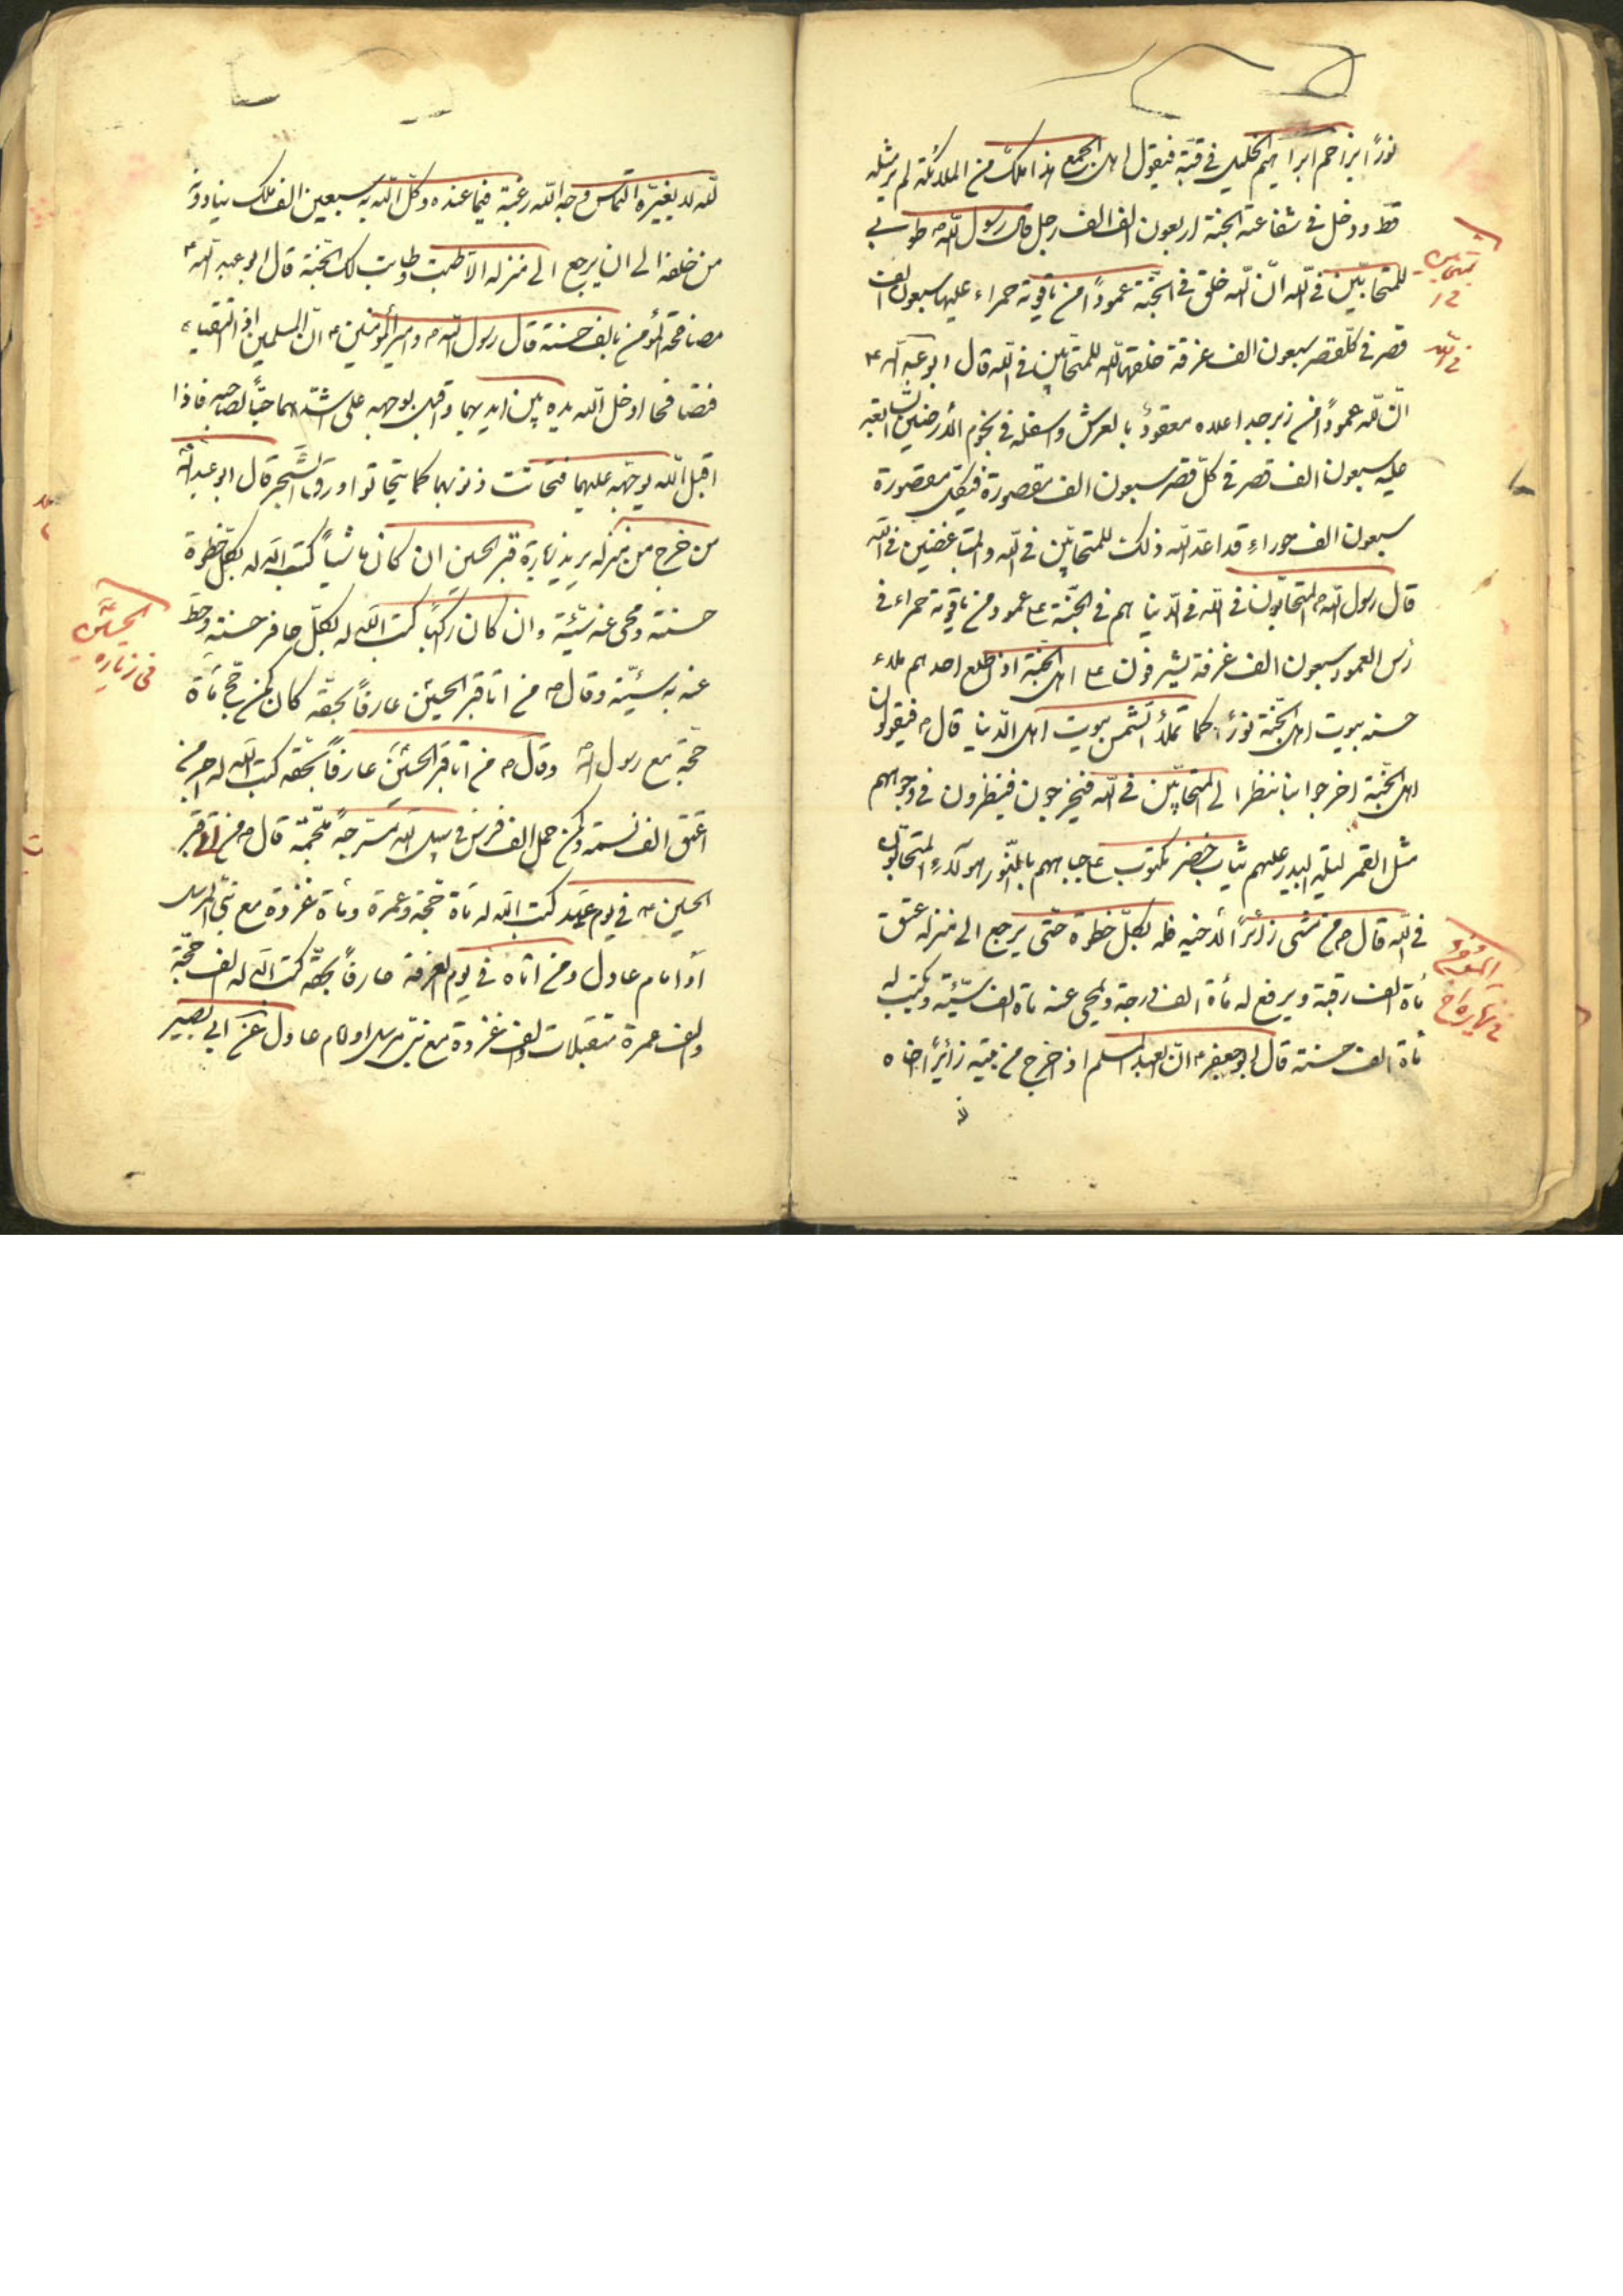 نورًا يزاحم ابراهيم الخليل في قبّة فيقول اهل الجمع هذا ملك من الملائكة لم ير مثله
قط ودخل في شفاعته الجنة اربعون الف الف رجل قال رسول اللّه ص طوبى
للمتحابّين في اللّه انّ اللّه خلق في الجنّة عمودًا من ياقوتة حمراء عليها سبعون الف
قصر في كلّ قصر سبعون الف غرفة خلقها اللّه للمتحابّين في اللّه قال ابو عبد اللّه ع
انّ للّه عمودًا من زبرجد اعلاه معقودٌ بالعرش واسفله في تخوم الأرضين السّابعة
عليه سبعون الف قصر في كلّ قصر سبعون الف مقصورة في كلّ مقصورة
سبعون الف حوراء قد اعدّ اللّه ذلك للمتحابّين في اللّه والمتباغضين في اللّه
قال رسول اللّه ص المتحابّون في اللّه في الدّنيا هم في الجنّة على عمود من ياقوتة حمراء في
رأس العمود سبعون الف غرفة يشرفون على اهل الجنّة اذا طلع احدهم ملاء
حسنه بيوت اهل الجنّة نورًا كما تملأ الشّمس بيوت اهل الدّنيا قال ص فيقولون
اهل الجنّة اخرجوا بنا ننظر الى المتحابّين في اللّه فيخرجون فينظرون في وجوههم
مثل القمر ليلة البدر عليهم ثياب خضر مكتوب على جباههم بالنّور هؤلاء المتحابّون
في اللّه قال ص من مشى زائرًا لأخيه فله بكلّ خطوة حتّى يرجع الى منزله عتق
مأة الف رقبة ويرفع له مأة الف درجة ويمحى عنه مأة الف سيّئة ويكتب له
مأة الف حسنة قال ابو جعفر ع انّ العبد المسلم اذا خرج من بيته زائرًا اخاه
في المتحابين
في اللّه
المؤمن
في زيارة اخ
للّه لا لغيره التماس وجه اللّه رغبة فيما عنده وكّل اللّه به سبعين الف ملك ينادونه
من خلفه الى ان يرجع الى منزله الا طبت وطابت لك الجنّة قال ابو عبد اللّه ع
مصافحة المؤمن بالف حسنة قال رسول اللّه ص وامير المؤمنين ع انّ المسلمين اذا التقيا
فتصافحا ادخل اللّه يده بين ايديهما واقبل بوجهه على اشدّهما حبًّا لصاحبه فاذا
اقبل اللّه بوجهه عليهما تتحاتت ذنوبهما كما يتحات ورق الشّجر قال ابو عبد اللّه
من خرج من منزله يريد زيارة قبر الحسين ان كان ماشيًا كتب اللّه له بكلّ خطوة
حسنة ومحى عنه سيّئة وان كان راكبًا كتب اللّه له بكلّ حافر حسنة وحطّ
عنه به سيّئة وقال ص من اتا قبر الحسين عارفًا بحقّه كان كمن حجّ مأة
حجّة مع رسول اللّه وقال ص من اتا قبر الحسين عارفًا بحقّه كتب اللّه له اجر من
اعتق الف نسمة وكمن حمل الف فرس في سبيل اللّه مسرّجة ملجّمة قال ص من اتى قبر
الحسين ع في يوم عيد كتب اللّه له مأة حجّة وعمرة ومأة غزوة مع نبيّ المرسل
او امام عادل ومن اتاه في يوم العرفة عارفًا بحقّه كتب اللّه له الف حجّة
والف عمرة متقبلات والف غزوة مع نبيّ مرسل او امام عادل عن ابي بصير
الحسين
في زيارة